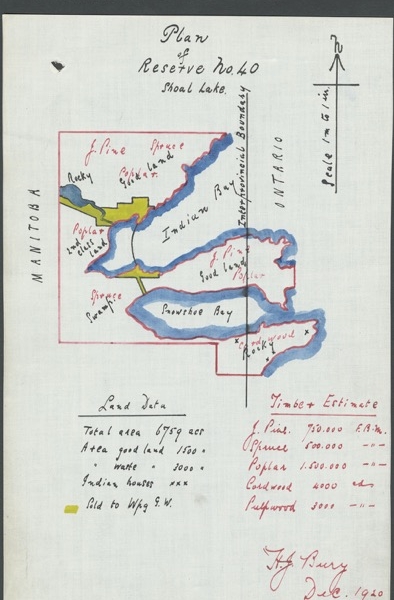 Plan
of
Reserve No. 40
Shoal Lake.
N
Scale 1 m. to 1 in.
Interprovincial Boundary
MANITOBA
ONTARIO
J. Pine
Spruce
Poplar.
Good land
Rocky
Indian Bay
Poplar
2nd class land
J. Pine
Good land
Poplar
Spruce
Swamp.
Snowshoe Bay
Cordwood
Rocky
x x x
Land Data
Total area 6759 acs
Area good land 1500 "
" waste " 3000 "
Indian houses xxx
Sold to Wpg G. W.
Timber Estimate
J. Pine. 750.000 F.B.M.
Spruce 500.000 -"-
Poplar 1.500.000 -"-
Cordwood 4000 cds
Pulpwood 3000 -"-
H.J. Bury
Dec. 1920